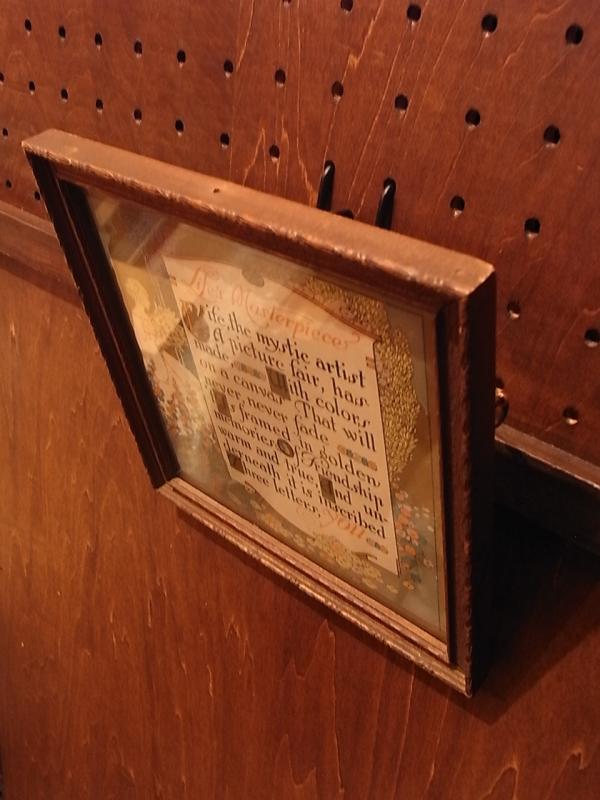 Her Masterpiece
Life, the mystic artist
A picture fair, has
made With colors
on a canvas That will
never, never fade
Is framed in golden
memories Of Friendship
warm and true, And un-
derneath it is inscribed
three letters, you